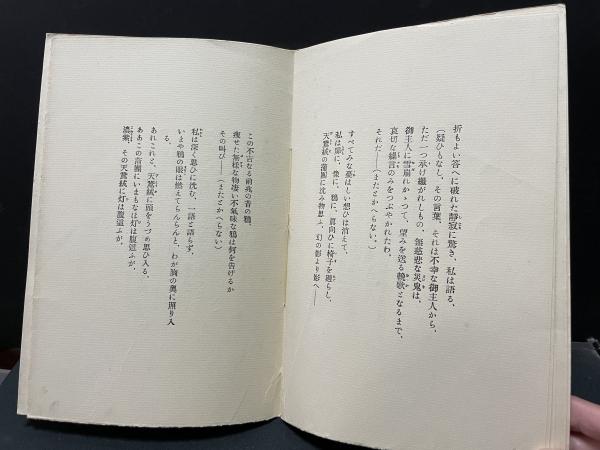 折もよい答へに破れた靜寂に驚き、私は語る、
(疑ひもなし、その言葉、それは不幸な御主人から、
ただ一つ承け繼がれしもの、無慈悲な災鬼は、
御主人に雪崩れかゝつて、望みを送る輓歌となるまで、
哀切な繰言のみをつぶやかれたわ、
それだ――(またとかへらない。)
すべてみな憂はしい想ひは消えて、
私は扉に、像に、鴉に、眞向ひに椅子を廻らし、
天鵞絨の蒲團に沈み物思ふ、幻の影より影へ――
この不吉なる前兆の昔の鴉、
痩せた無樣な物凄い不氣味な鴉は何を告げるか
その叫び――(またとかへらない)
私は深く思ひに沈む、一語と語らず、
いまや鴉の眼は燃えてらんらんと、わが胸の奧に照り入
る、
あれこれと、天鵞絨に頭をうづめ思ひ入る、
ああこの蒲團にいまもなほ灯は腹這ふが、
濃紫、その天鵞絨に灯は腹這ふが、